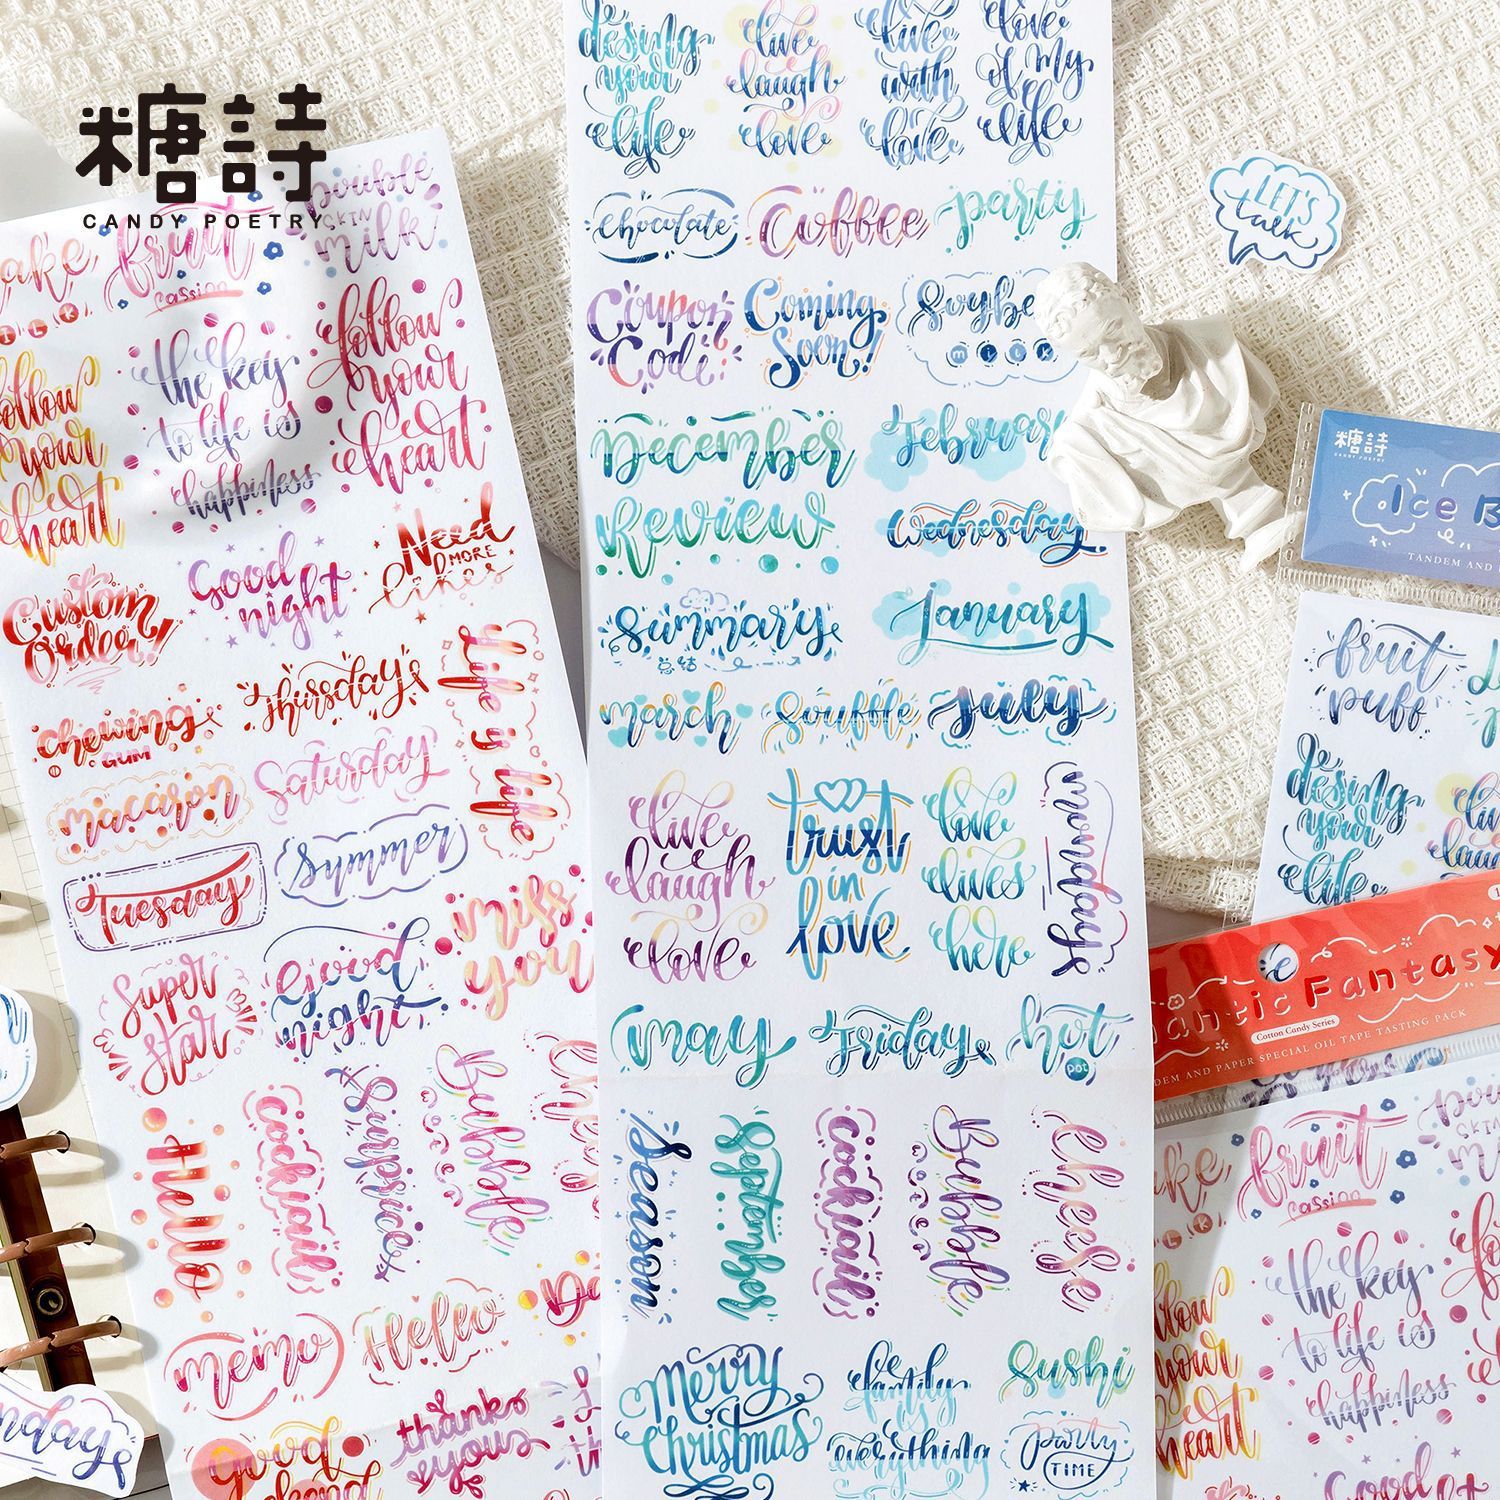 糖詩
CANDY POETRY
desing
your
life
live
laugh
love
live
with
love
love
of my
life
chocolate
Coffee
party
Coupon
Code!
Coming
Soon!
Soybe
milk
December
February
Review
Wednesday
Summary
总结
January
march
Soufffle
July
live
laugh
love
trust
in
love
love
lives
here
monday
may
Friday
hot
pot
Season
September
cocktail
Bubble
water
cheese
merry
christmas
family
is
everything
Sushi
party
TIME
ake
fruit
passion
Double
SKIN
milk
follow
your
heart
the key
to life is
happiness
follow
your
heart
Custom
Order!
Good
night
Need
MORE
likes
Thursday
Life is life
chewing
GUM
macaron
Saturday
Tuesday
Summer
miss
you
Super
Star
Good
night
Hello
cocktail
Surprice
Bubble
water
memo
Hello
thanks
yous
Good
LET'S
talk
糖詩
CANDY POETRY
Ice B
TANDEM AND
fruit
puff
desing
your
life
antic Fantasy
Cotton Candy Series
DEM AND PAPER SPECIAL OIL TAPE TASTING PACK
ake
fruit
passion
SKIN
the key
to life is
happiness
llow
your
heart
Good
nday